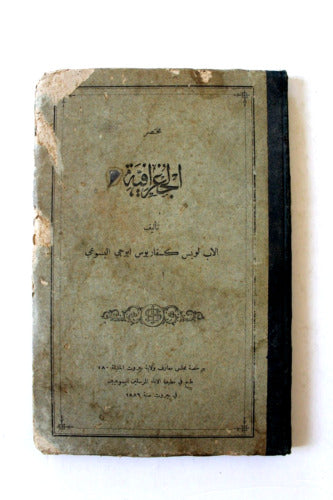 مختصر
الجغرافية
تأليف
الاب لويس كسفاريوس ابوجي اليسوعي
برخصة مجلس معارف ولاية بيروت الجليلة ١٨٠
طبع في مطبعة الاباء المرسلين اليسوعيين
في بيروت سنة ١٨٨٩